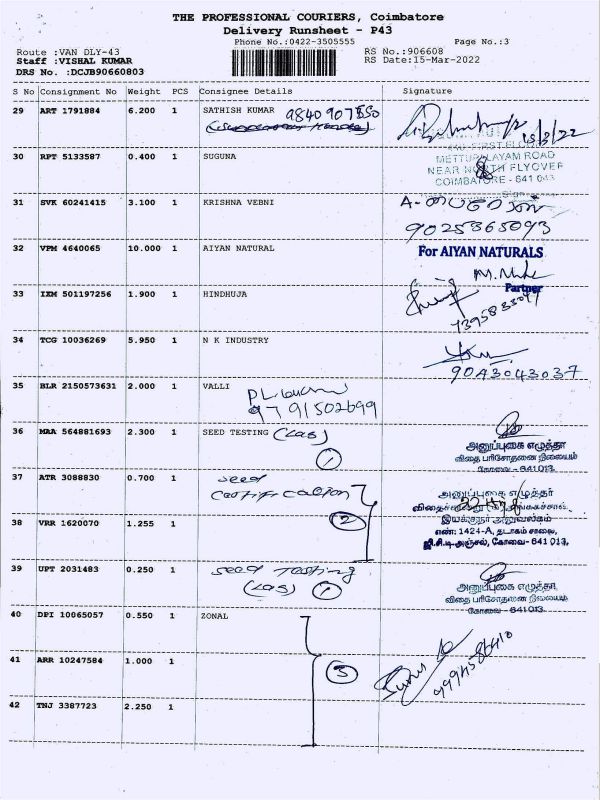 THE PROFESSIONAL COURIERS, Coimbatore
Delivery Runsheet - P43
Phone No.:0422-3505555
Page No.:3
Route :VAN DLY-43
RS No.:906608
Staff :VISHAL KUMAR
RS Date:15-Mar-2022
DRS No. :DCJB90660803
S No Consignment No Weight PCS Consignee Details Signature
29 ART 1791884 6.200 1 SATHISH KUMAR
15/3/22
FIRST FLOOR
METTUPALAYAM ROAD
30 RPT 5133587 0.400 1 SUGUNA
NEAR NORTH FLYOVER
COIMBATORE - 641 043
31 SVK 60241415 3.100 1 KRISHNA VEBNI
9025365093
32 VPM 4640065 10.000 1 AIYAN NATURAL
For AIYAN NATURALS
Partner
33 IXM 501197256 1.900 1 HINDHUJA
34 TCG 10036269 5.950 1 N K INDUSTRY
9043043037
35 BLR 2150573631 2.000 1 VALLI
9791502699
36 MAA 564881693 2.300 1 SEED TESTING (LAB)
1
அனுப்புகை எழுத்தர்
விதை பரிசோதனை நிலையம்
கோவை - 641 013.
37 ATR 3088830 0.700 1 seed
certification
2
அனுப்புகை எழுத்தர்
இயக்குநர் அலுவலகம்
எண்: 1424-A, தடாகம் சாலை,
ஜி.சி.டி-அஞ்சல், கோவை - 641 013.
38 VRR 1620070 1.255 1
39 UPT 2031483 0.250 1 seed Testing
(LAB) 1
அனுப்புகை எழுத்தர்
விதை பரிசோதனை நிலையம்
கோவை - 641 013.
40 DPI 10065057 0.550 1 ZONAL
41 ARR 10247584 1.000 1
3
42 TNJ 3387723 2.250 1